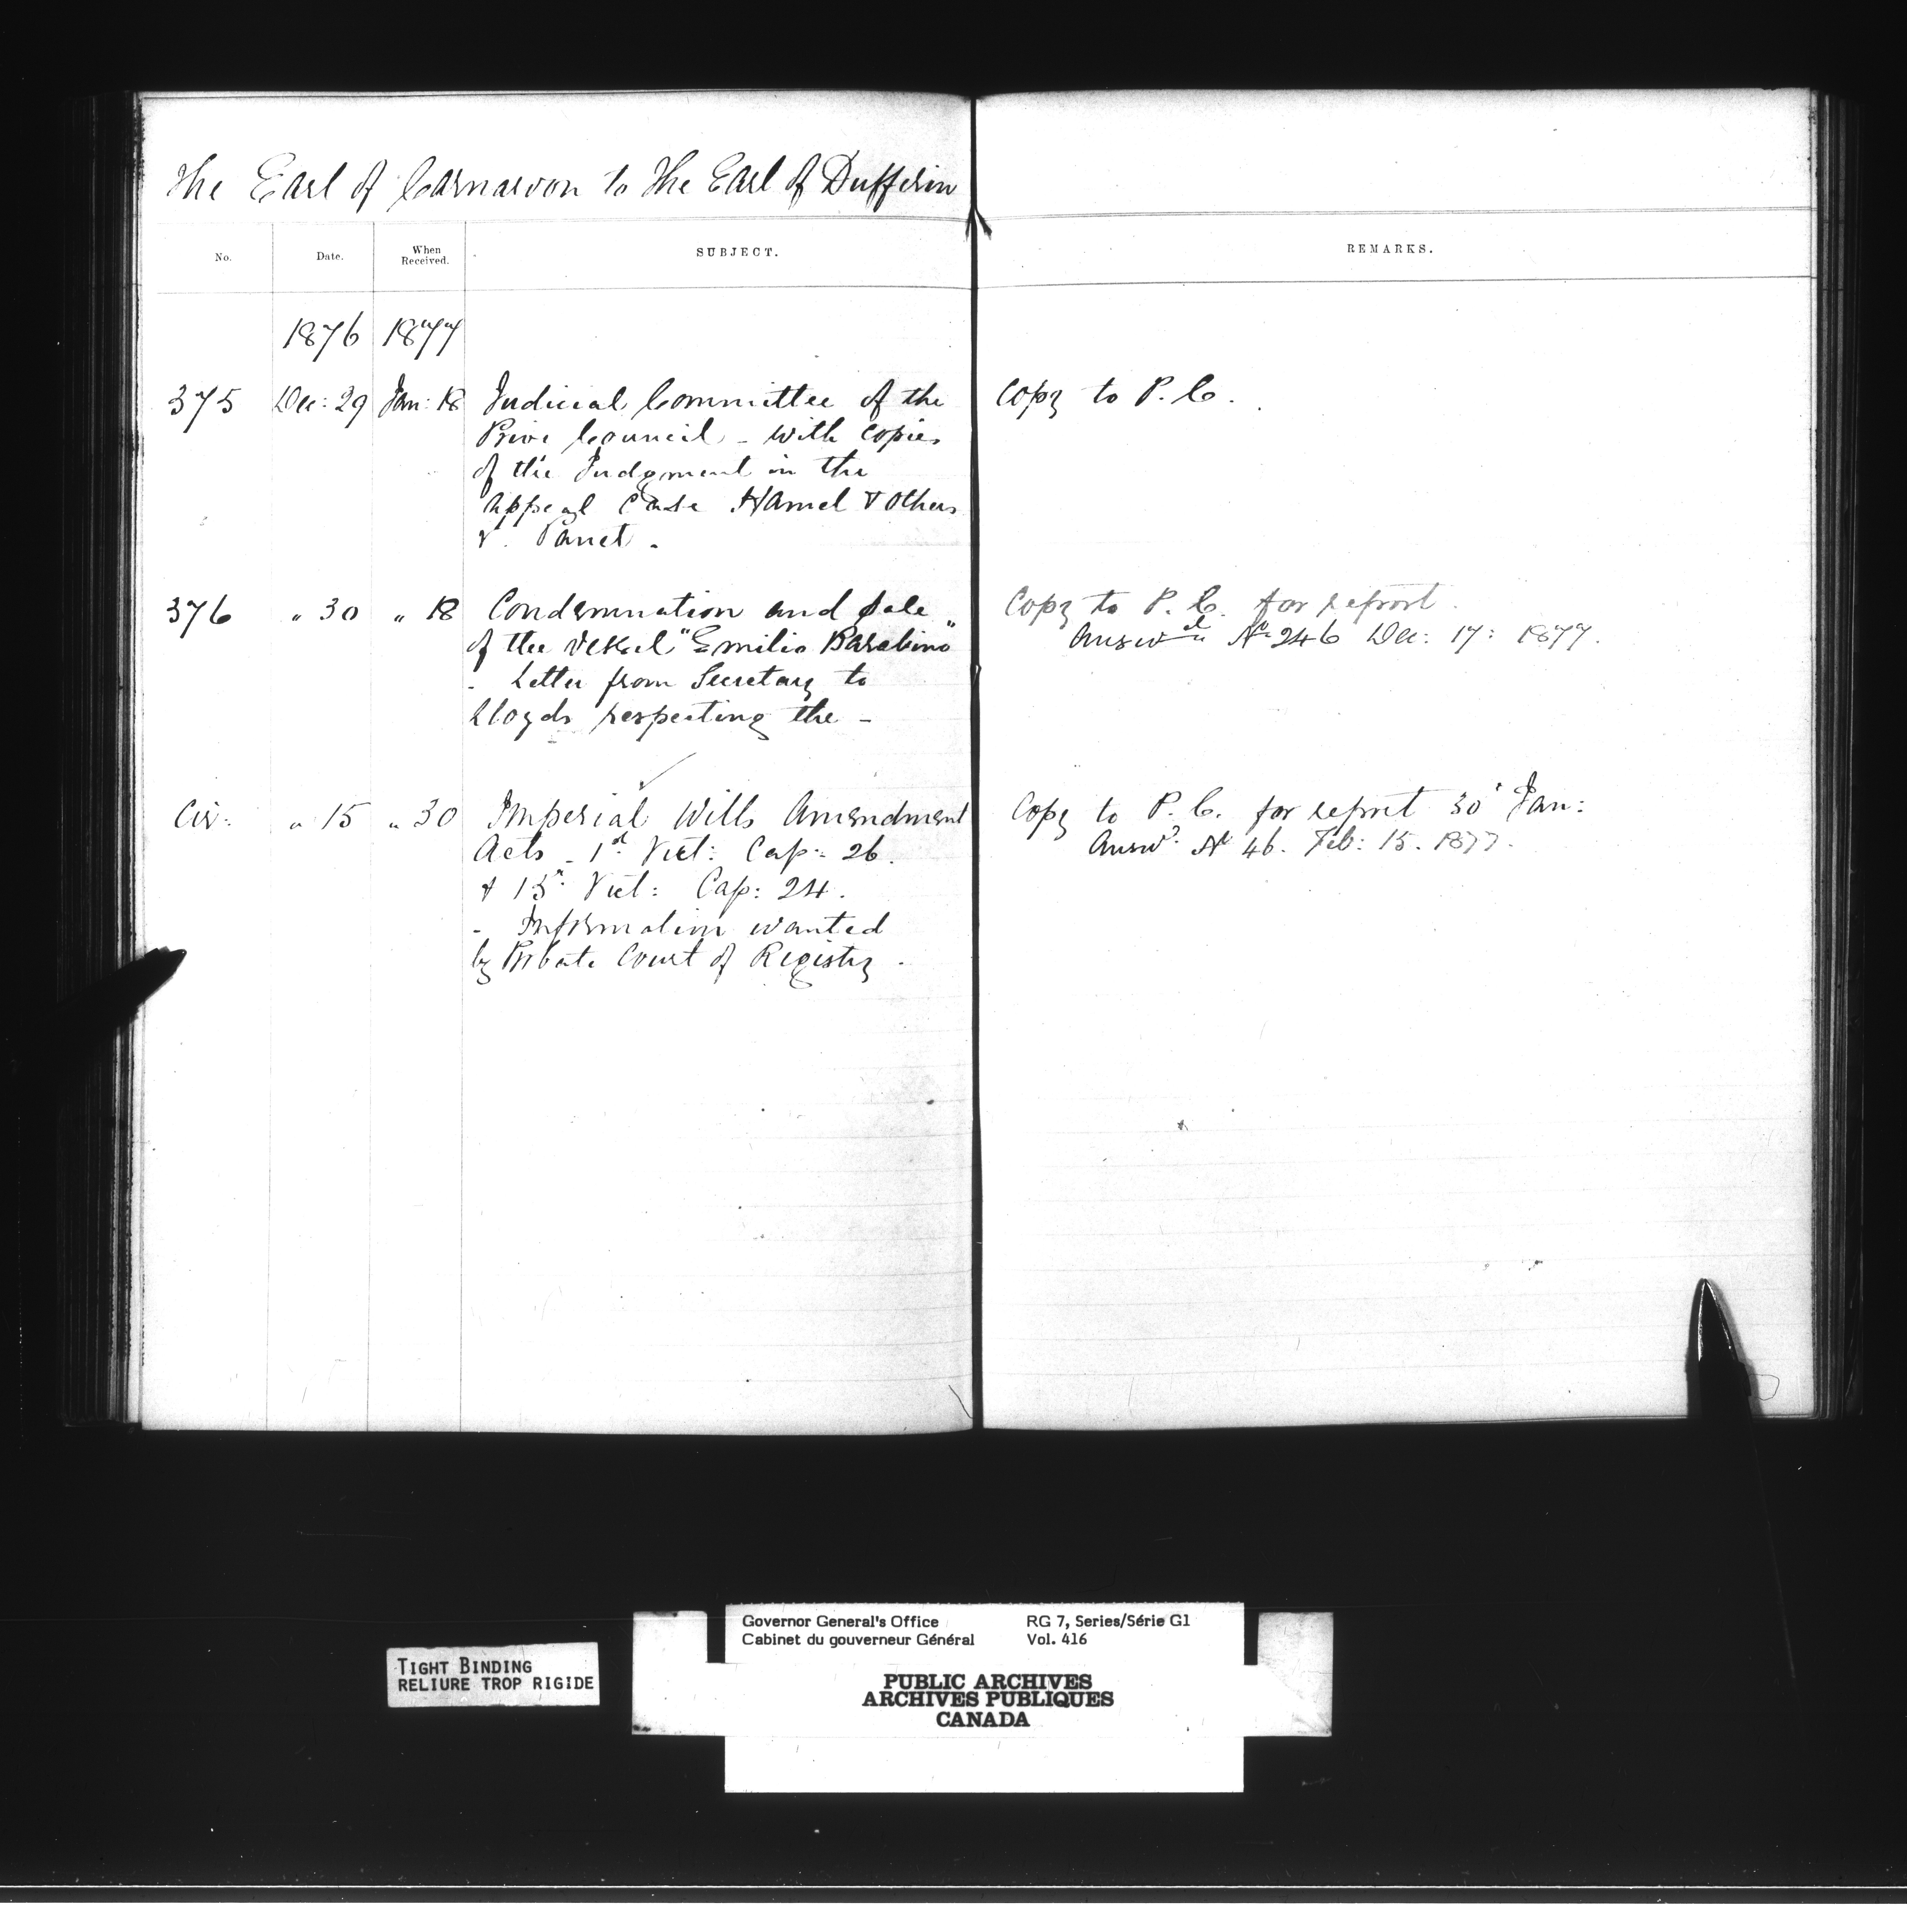 The Earl of Carnarvon to The Earl of Dufferin
No. Date. When Received. SUBJECT. REMARKS.
1876 1877
375 Dec: 29 Jan: 18 Judicial Committee of the Copy to P. C.
Privy Council - with copies
of the Judgment in the
appeal case Hamel & others
v. Panet -
376 " 30 " 18 Condemnation and sale Copy to P. C. for report.
of the vessel "Emilio Barabino" Answd No 246 Dec: 17: 1877.
- Letter from Secretary to
Lloyds respecting the -
Cir: " 15 " 30 Imperial Wills Amendment Copy to P. C. for report 30 Jan:
Acts - 1st Vict: Cap: 26. Answd No 46. Feb: 15. 1877.
& 15th Vict: Cap: 24.
- Information wanted
by Probate Court of Registry -
TIGHT BINDING
RELIURE TROP RIGIDE
Governor General's Office RG 7, Series/Série G1
Cabinet du gouverneur Général Vol. 416
PUBLIC ARCHIVES
ARCHIVES PUBLIQUES
CANADA